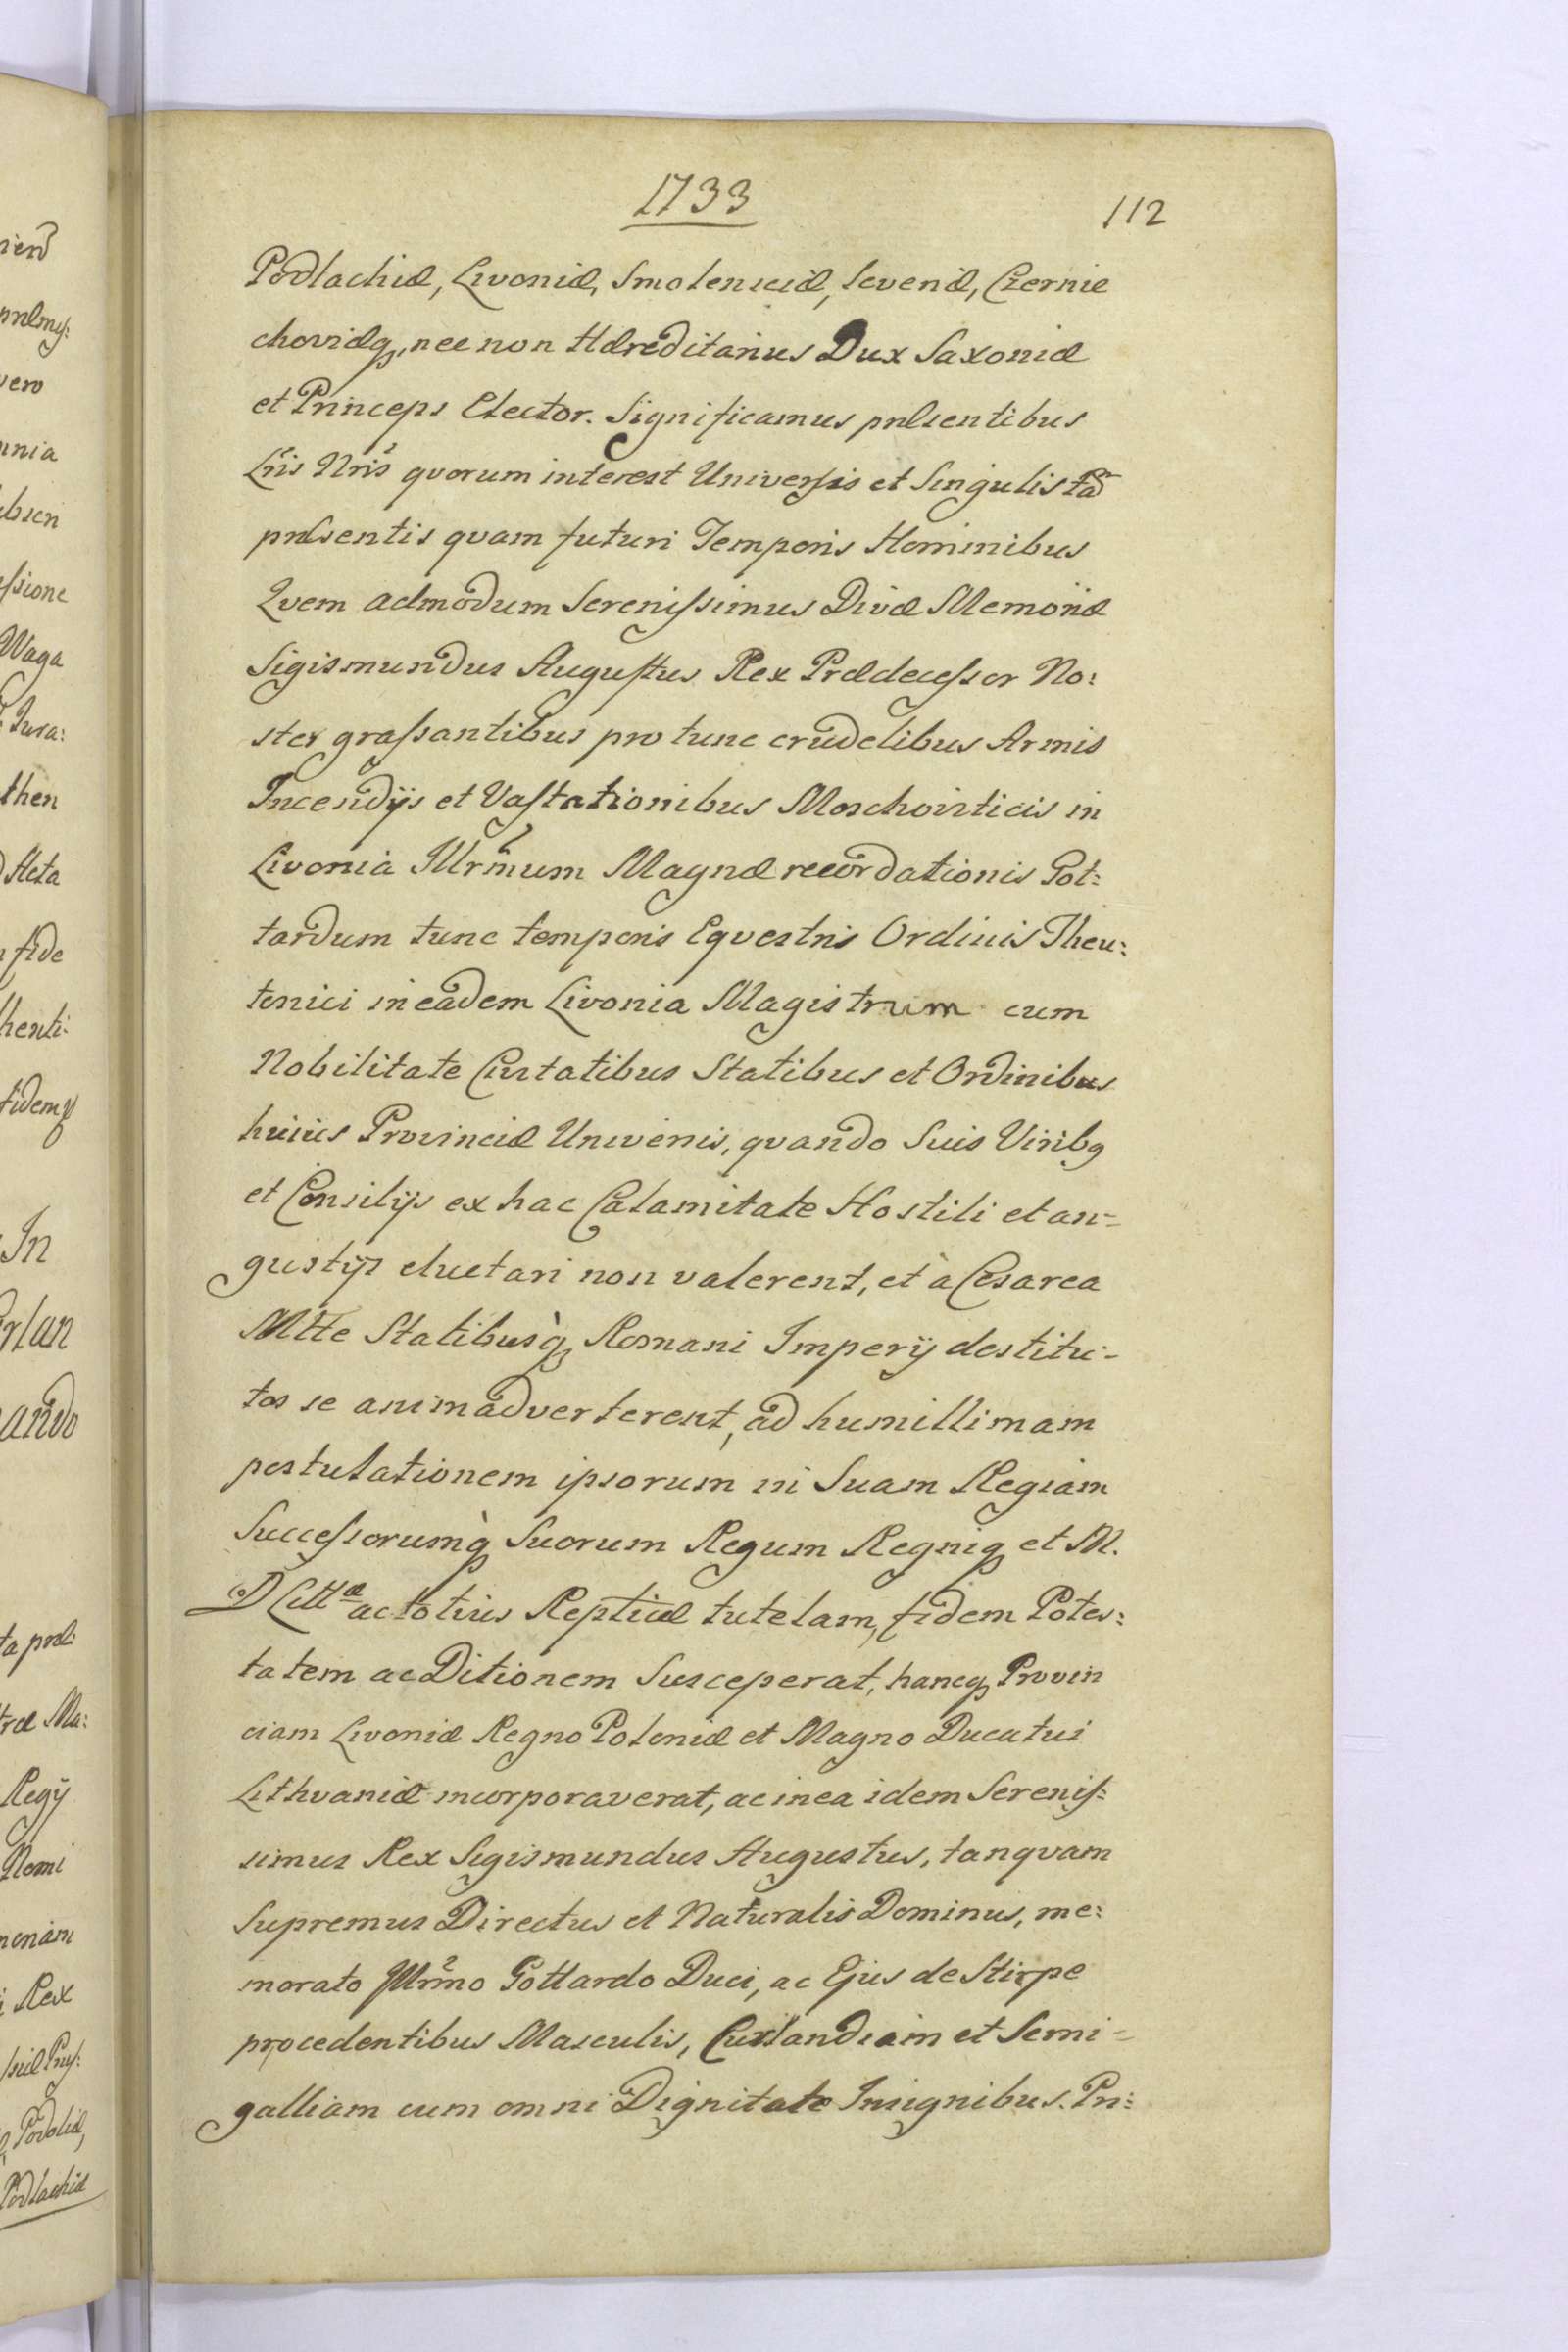 1733
112
Podlachiæ, Livoniæ, Smolensciæ, Severiæ, Czernie
choviæq, nec non Hæreditarius Dux Saxoniæ
et Princeps Elector. Significamus pnlsentibus
Lris Nris quorum interest Universis et Singulis tã
pnlsentis quam futuri Temporis Hominibus
Qvem admodum Serenissimus Divæ Memoriæ
Sigismundus Augustus Rex Prædecessor No:
ster grassantibus pro tunc crudelibus Armis
Incendijs et Vastationibus Moschoviticis in
Livonia Illrmum Magnæ recordationis Got:
tardum tunc temporis Eqvestris Ordinis Theu:
tonici in eadem Livonia Magistrum cum
Nobilitate Civitatibus Statibus et Ordinibus
huius Provinciæ Universis, qvando Suis Viribq
et Consilijs ex hac Calamitate Hostili et an=
gustijs eluctari non valerent, et à Cesarea
Mtte Statibusq Romani Imperij destitu-
tos se animadverterent, ad humillimam
postulationem ipsorum in Suam Regiam
Successorumq Suorum Regum Regniq et M.
D Littæ ac totius Repticæ tutelam, fidem Potes:
tatem ac Ditionem Susceperat, hancq Provin
ciam Livoniæ Regno Poloniæ et Magno Ducatui
Lithvaniæ incorporaverat, ac in ea idem Serenis:
simus Rex Sigismundus Augustus, tanqvam
Supremus Directus et Naturalis Dominus, me:
morato Illrmo Gottardo Duci, ac Ejus de Stirpe
procedentibus Masculis, Curlandiam et Semi=
galliam cum omni Dignitate Insignibus. Pri: